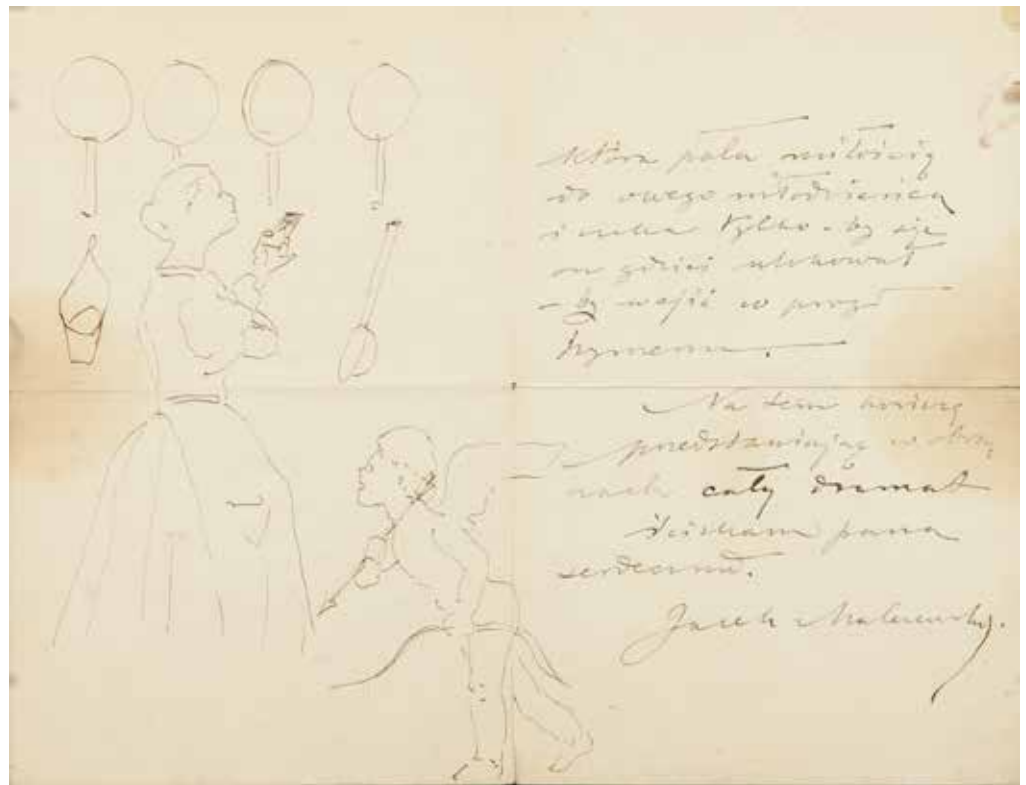 która pała miłością
do owego młodzieńca
i czeka tylko - by się
on gdzieś ulokował
- by wejść w progi
hymenu.
Na tem kończę
przedstawiając w obra
zach cały dramat
ściskam pana
serdecznie.
Jacek Malczewski.